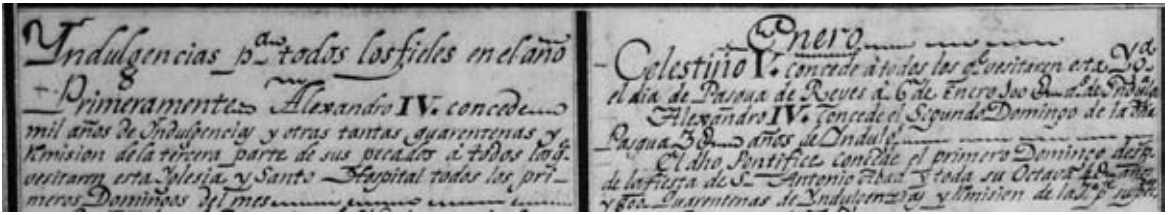 Yndulgencias p.ª todos los fieles en el año
Primeramente Alexandro IV. concede
mil años de Indulgencias y otras tantas quarentenas y
Remision de la tercera parte de sus pecados á todos los q.
vesitaren esta Iglesia y Santo Hospital todos los pri-
meros Domingos del mes
Enero
Celestino V. concede á todos los q. vesitaren esta
el dia de Pasqua de Reyes á 6 de Enero
Alexandro IV. concede el Segundo Domingo de la dha
Pasqua años de Indulg.
El dho Pontifice concede el primero Domingo desp.
de la fiesta de S. Antonio Abad y toda su Octava años
y Quarentenas de Indulgencias y Remision de la